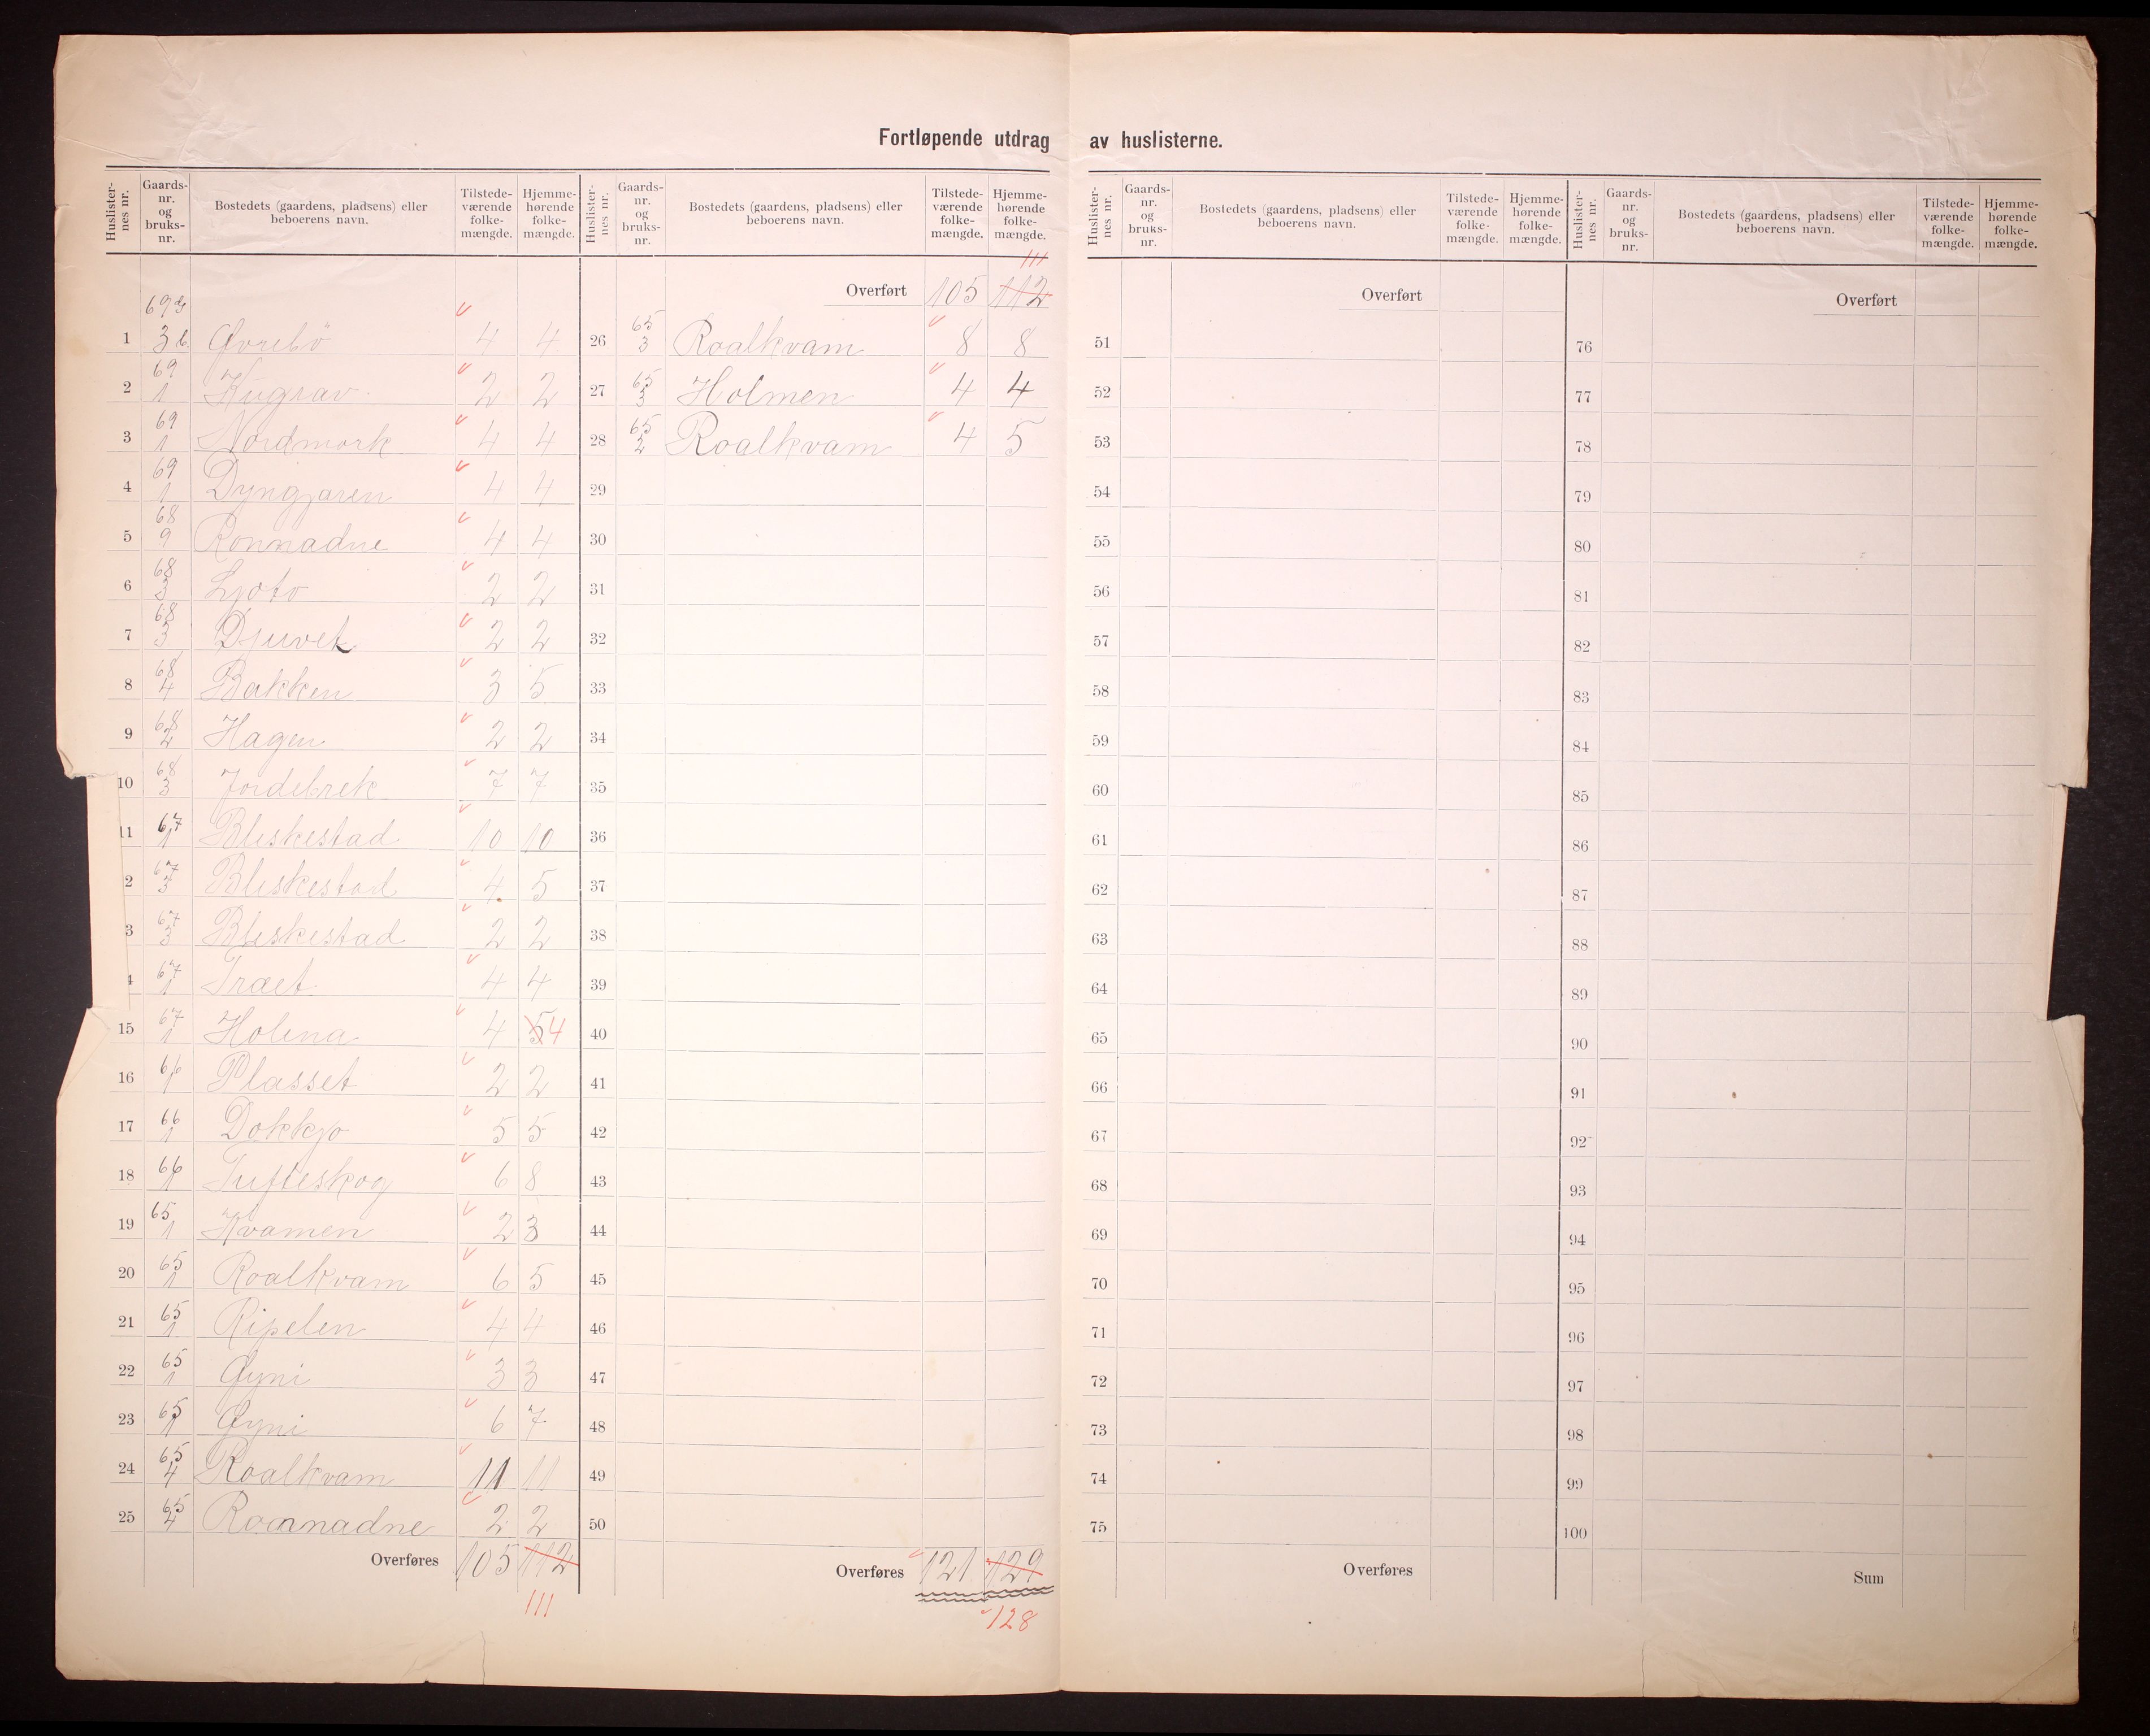 Fortløpende utdrag av huslisterne.
Huslister-nes nr. Gaards-nr. og bruks-nr. Bostedets (gaardens, pladsens) eller beboerens navn. Tilstede-værende folke-mængde. Hjemme-hørende folke-mængde.
1 69 3 Øvrebö 4 4
2 69 1 2 2
3 69 1 Nordmork 4 4
4 69 1 Dyngjaren 4 4
5 68 9 Ronnadne 4 4
6 68 3 Ljoto 2 2
7 68 3 Djuvek 2 2
8 68 4 Bakken 3 5
9 68 4 Hagen 2 2
10 68 3 Jordebrek 7 7
11 67 1 Bleskestad 10 10
2 67 3 Bleskestad 4 5
3 67 3 Bleskestad 2 2
67 1 Træet 4 4
15 67 1 Holena 4 5 4
16 66 1 Plasset 2 2
17 66 1 Dokkjo 5 5
18 66 1 Tufteskog 6 8
19 65 1 Kvamen 2 3
20 65 1 Roalkvam 6 5
21 65 1 Ripelen 4 4
22 65 1 Gyni 3 3
23 65 1 Gyni 6 7
24 65 4 Roalkvam 11 11
25 65 4 Roannadne 2 2
Overføres 105 112
111
Huslister-nes nr. Gaards-nr. og bruks-nr. Bostedets (gaardens, pladsens) eller beboerens navn. Tilstede-værende folke-mængde. Hjemme-hørende folke-mængde.
111
Overført 105 112
26 65 3 Roalkvam 8 8
27 65 3 Holmen 4 4
28 65 2 Roalkvam 4 5
29
30
31
32
33
34
35
36
37
38
39
40
41
42
43
44
45
46
47
48
49
50
Overføres 121 129
128
Huslister-nes nr. Gaards-nr. og bruks-nr. Bostedets (gaardens, pladsens) eller beboerens navn. Tilstede-værende folke-mængde. Hjemme-hørende folke-mængde.
Overført
51
52
53
54
55
56
57
58
59
60
61
62
63
64
65
66
67
68
69
70
71
72
73
74
75
Overføres
Huslister-nes nr. Gaards-nr. og bruks-nr. Bostedets (gaardens, pladsens) eller beboerens navn. Tilstede-værende folke-mængde. Hjemme-hørende folke-mængde.
Overført
76
77
78
79
80
81
82
83
84
85
86
87
88
89
90
91
92
93
94
95
96
97
98
99
100
Sum